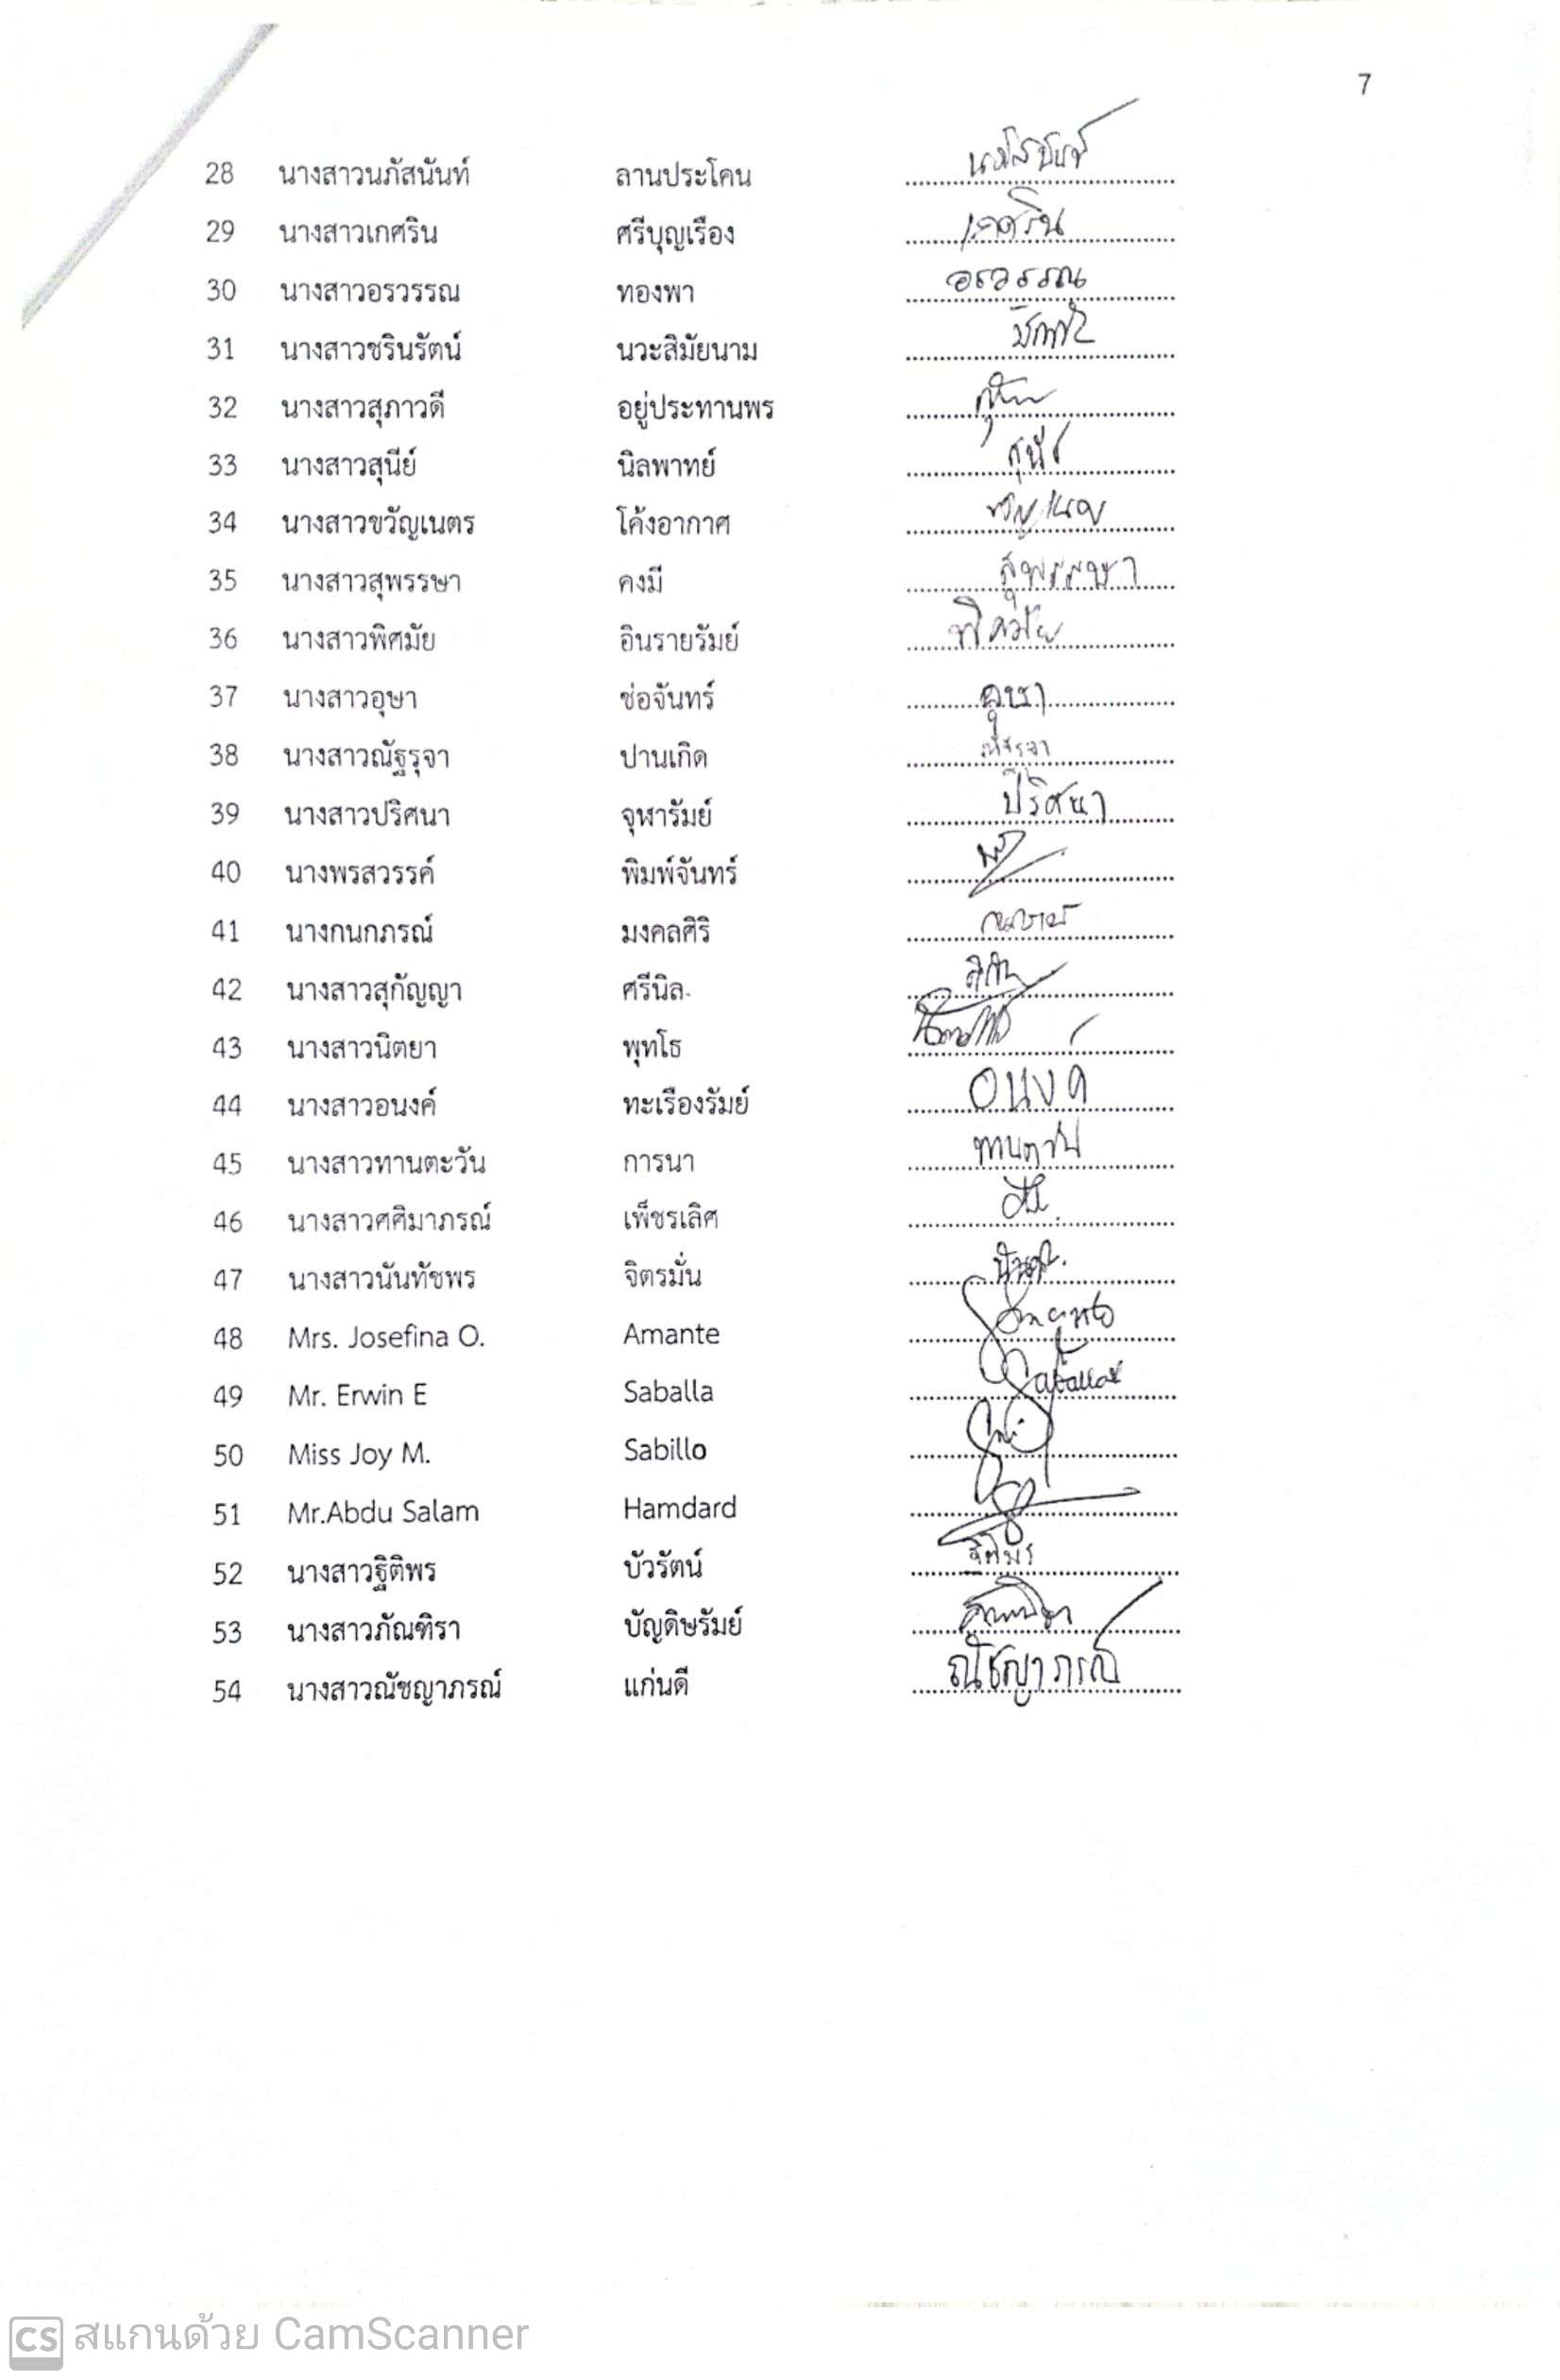 7
28 นางสาวนภัสนันท์ ลานประโคน นภัสนันท์
29 นางสาวเกศริน ศรีบุญเรือง เกศริน
30 นางสาวอรวรรณ ทองพา อรวรรณ
31 นางสาวชรินรัตน์ นวะสิมัยนาม
32 นางสาวสุภาวดี อยู่ประทานพร
33 นางสาวสุนีย์ นิลพาทย์ สุนีย์
34 นางสาวขวัญเนตร โค้งอากาศ
35 นางสาวสุพรรษา คงมี สุพรรษา
36 นางสาวพิศมัย อินรายรัมย์ พิศมัย
37 นางสาวอุษา ช่อจันทร์ อุษา
38 นางสาวณัฐรุจา ปานเกิด
39 นางสาวปริศนา จุฬารัมย์ ปริศนา
40 นางพรสวรรค์ พิมพ์จันทร์
41 นางกนกภรณ์ มงคลศิริ
42 นางสาวสุกัญญา ศรีนิล
43 นางสาวนิตยา พุทโธ
44 นางสาวอนงค์ ทะเรืองรัมย์ อนงค์
45 นางสาวทานตะวัน การนา
46 นางสาวศศิมาภรณ์ เพ็ชรเลิศ
47 นางสาวนันทัชพร จิตรมั่น
48 Mrs. Josefina O. Amante
49 Mr. Erwin E Saballa
50 Miss Joy M. Sabillo
51 Mr.Abdu Salam Hamdard
52 นางสาวฐิติพร บัวรัตน์ ฐิติพร
53 นางสาวภัณฑิรา บัญดิษรัมย์
54 นางสาวณัชญาภรณ์ แก่นดี ณัชญาภรณ์
CS สแกนด้วย CamScanner